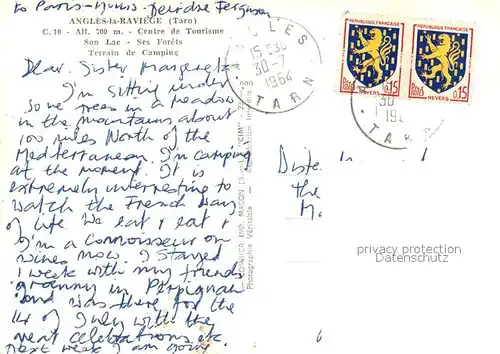 to Paris - yours - Deirdre Ferguson
ANGLÈS-la-RAVIÈGE (Tarn)
C. 10 - Alt. 700 m. - Centre de Tourisme
Son Lac - Ses Forêts
Terrain de Camping
Dear Sister Margaret,
I'm sitting under
some trees in a meadow
in the mountains about
100 miles North of the
Mediterranean. I'm camping
at the moment. It is
extremely interesting to
watch the French way
of life. We eat & eat &
I'm a connoisseur on
wines now. I stayed
1 week with my friends
granny in Perpignan
and was there for the
14 of July with the
great celebrations etc
next week I am going
COMBIER IMP. MACON
Photographie Véritable
ANGLES
15 H 30
30-7
1964
TARN
REPUBLIQUE FRANÇAISE
POSTES
0,15
NEVERS
REPUBLIQUE FRANÇAISE
POSTES
0,15
NEVERS
30
196
TARN
the
privacy protection
DATENSCHUTZ